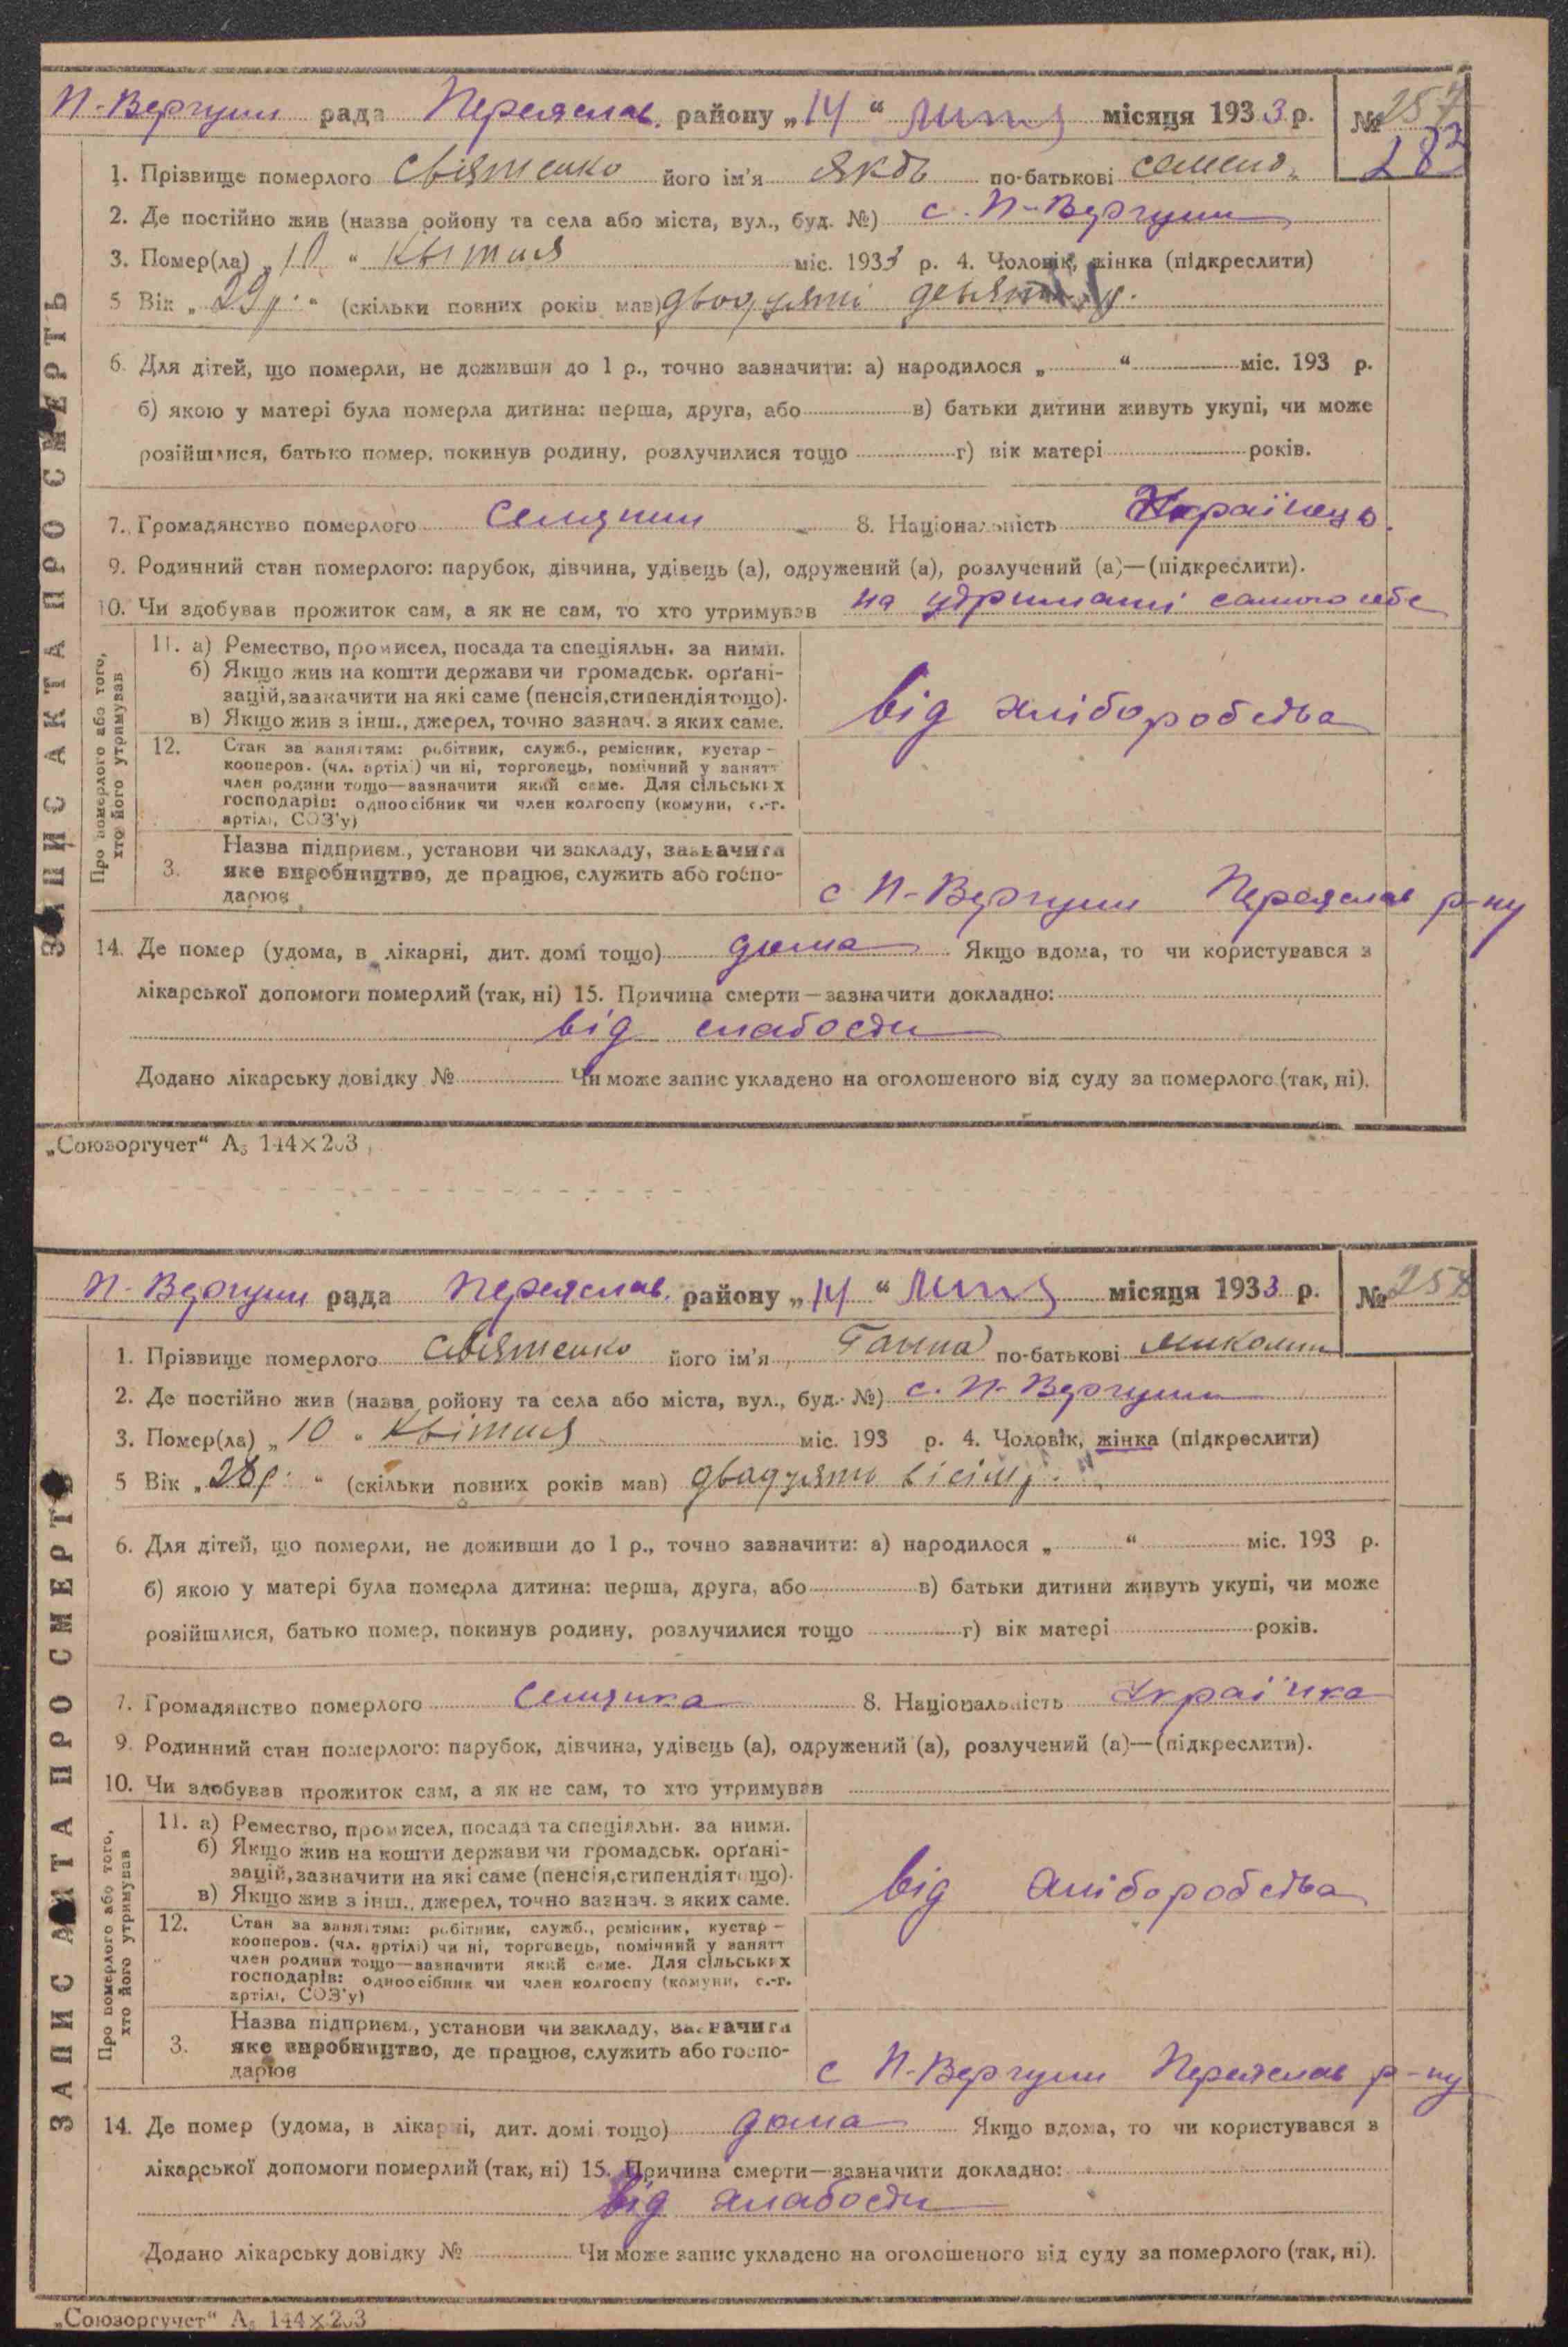 П-Вергуни рада Переяслав. району „14“ Липня місяця 1933 р. № 257
283
1. Прізвище померлого Святенко його ім'я Яків по-батькові Семено.
2. Де постійно жив (назва ройону та села або міста, вул., буд. №) с. П-Вергуни
3. Помер(ла) „10“ Квітня міс. 1933 р. 4. Чоловік, жінка (підкреслити)
5 Вік „29р.“ (скільки повних років мав) двадцять девять р.
6. Для дітей, що померли, не доживши до 1 р., точно зазначити: а) народилося „ “ міс. 193 р.
б) якою у матері була померла дитина: перша, друга, або в) батьки дитини живуть укупі, чи може
розійшлися, батько помер, покинув родину, розлучилися тощо г) вік матері років.
7. Громадянство померлого Селянин 8. Національність Українець.
9. Родинний стан померлого: парубок, дівчина, удівець (а), одружений (а), розлучений (а)—(підкреслити).
10. Чи здобував прожиток сам, а як не сам, то хто утримував на утриманні самого себе
ЗАПИС АКТА ПРО СМЕРТЬ
Про померлого або того, хто його утримував
11. а) Ремество, промисел, посада та спеціяльн. за ними.
б) Якщо жив на кошти держави чи громадськ. орґані-
зацій, зазначити на які саме (пенсія, стипендія тощо).
в) Якщо жив з інш., джерел, точно зазнач. з яких саме.
від хліборобства
12. Стан за заняттям: робітник, служб., ремісник, кустар –
кооперов. (чл. артілі) чи ні, торговець, помічний у занятт
член родини тощо—зазначити який саме. Для сільських
господарів: одноосібник чи член колгоспу (комуни, с.-г.
артілі, СОЗ'у)
3. Назва підприєм., установи чи закладу, зазначити
яке виробництво, де працює, служить або госпо-
дарює
с П-Вергуни Переяслав р-ну
14. Де помер (удома, в лікарні, дит. домі тощо) дома Якщо вдома, то чи користувався з
лікарської допомоги померлий (так, ні) 15. Причина смерти—зазначити докладно:
від слабости
Додано лікарську довідку № Чи може запис укладено на оголошеного від суду за померлого (так, ні).
„Союзоргучет“ А₅ 144×203
П-Вергуни рада Переяслав. району „14“ Липня місяця 1933 р. № 258
1. Прізвище померлого Святенко його ім'я Ганна по-батькові Миколи
2. Де постійно жив (назва ройону та села або міста, вул., буд. №) с. П-Вергуни
3. Помер(ла) „10“ Квітня міс. 193 р. 4. Чоловік, жінка (підкреслити)
5 Вік „28р.“ (скільки повних років мав) двадцять вісім р.
6. Для дітей, що померли, не доживши до 1 р., точно зазначити: а) народилося „ “ міс. 193 р.
б) якою у матері була померла дитина: перша, друга, або в) батьки дитини живуть укупі, чи може
розійшлися, батько помер, покинув родину, розлучилися тощо г) вік матері років.
7. Громадянство померлого Селянка 8. Національність Українка
9. Родинний стан померлого: парубок, дівчина, удівець (а), одружений (а), розлучений (а)—(підкреслити).
10. Чи здобував прожиток сам, а як не сам, то хто утримував
ЗАПИС АКТА ПРО СМЕРТЬ
Про померлого або того, хто його утримував
11. а) Ремество, промисел, посада та спеціяльн. за ними.
б) Якщо жив на кошти держави чи громадськ. орґані-
зацій, зазначити на які саме (пенсія, стипендія тощо).
в) Якщо жив з інш., джерел, точно зазнач. з яких саме.
від хліборобства
12. Стан за заняттям: робітник, служб., ремісник, кустар –
кооперов. (чл. артілі) чи ні, торговець, помічний у занятт
член родини тощо—зазначити який саме. Для сільських
господарів: одноосібник чи член колгоспу (комуни, с.-г.
артілі, СОЗ'у)
3. Назва підприєм., установи чи закладу, зазначити
яке виробництво, де працює, служить або госпо-
дарює
с П-Вергуни Переяслав р-ну
14. Де помер (удома, в лікарні, дит. домі тощо) дома Якщо вдома, то чи користувався з
лікарської допомоги померлий (так, ні) 15. Причина смерти—зазначити докладно:
від слабости
Додано лікарську довідку № Чи може запис укладено на оголошеного від суду за померлого (так, ні).
„Союзоргучет“ А₅ 144×203